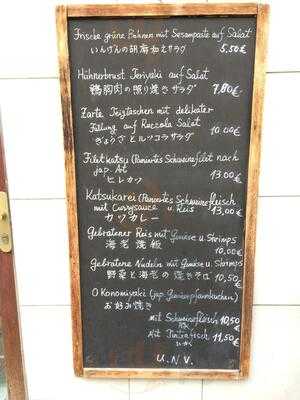 Frische grüne Bohnen mit Sesampaste auf Salat
いんげんの胡麻和えサラダ 5,50€
Hühnerbrust Teriyaki auf Salat
鶏胸肉の照り焼きサラダ 7,80€
Zarte Teigtaschen mit delikater
Füllung auf Ruccola Salat 10,00€
ぎょうざとルッコラサラダ
Filetkatsu (Paniertes Schweinefilet nach
jap. Art 13,00€
ヒレカツ
Katsukarei (Paniertes Schweinefleisch
mit Currysauce u. Reis 13,00€
カツカレー
Gebratener Reis mit Gemüse u. Shrimps
海老焼飯 10,00€
Gebratene Nudeln mit Gemüse u. Shrimps
野菜と海老の焼きそば 10,50€
O Konomiyaki (jap. Gemüsepfannkuchen)
お好み焼き
Mit Schweinefleisch 10,50€
Mit Tintenfisch 11,50€
いか
U.N.V.